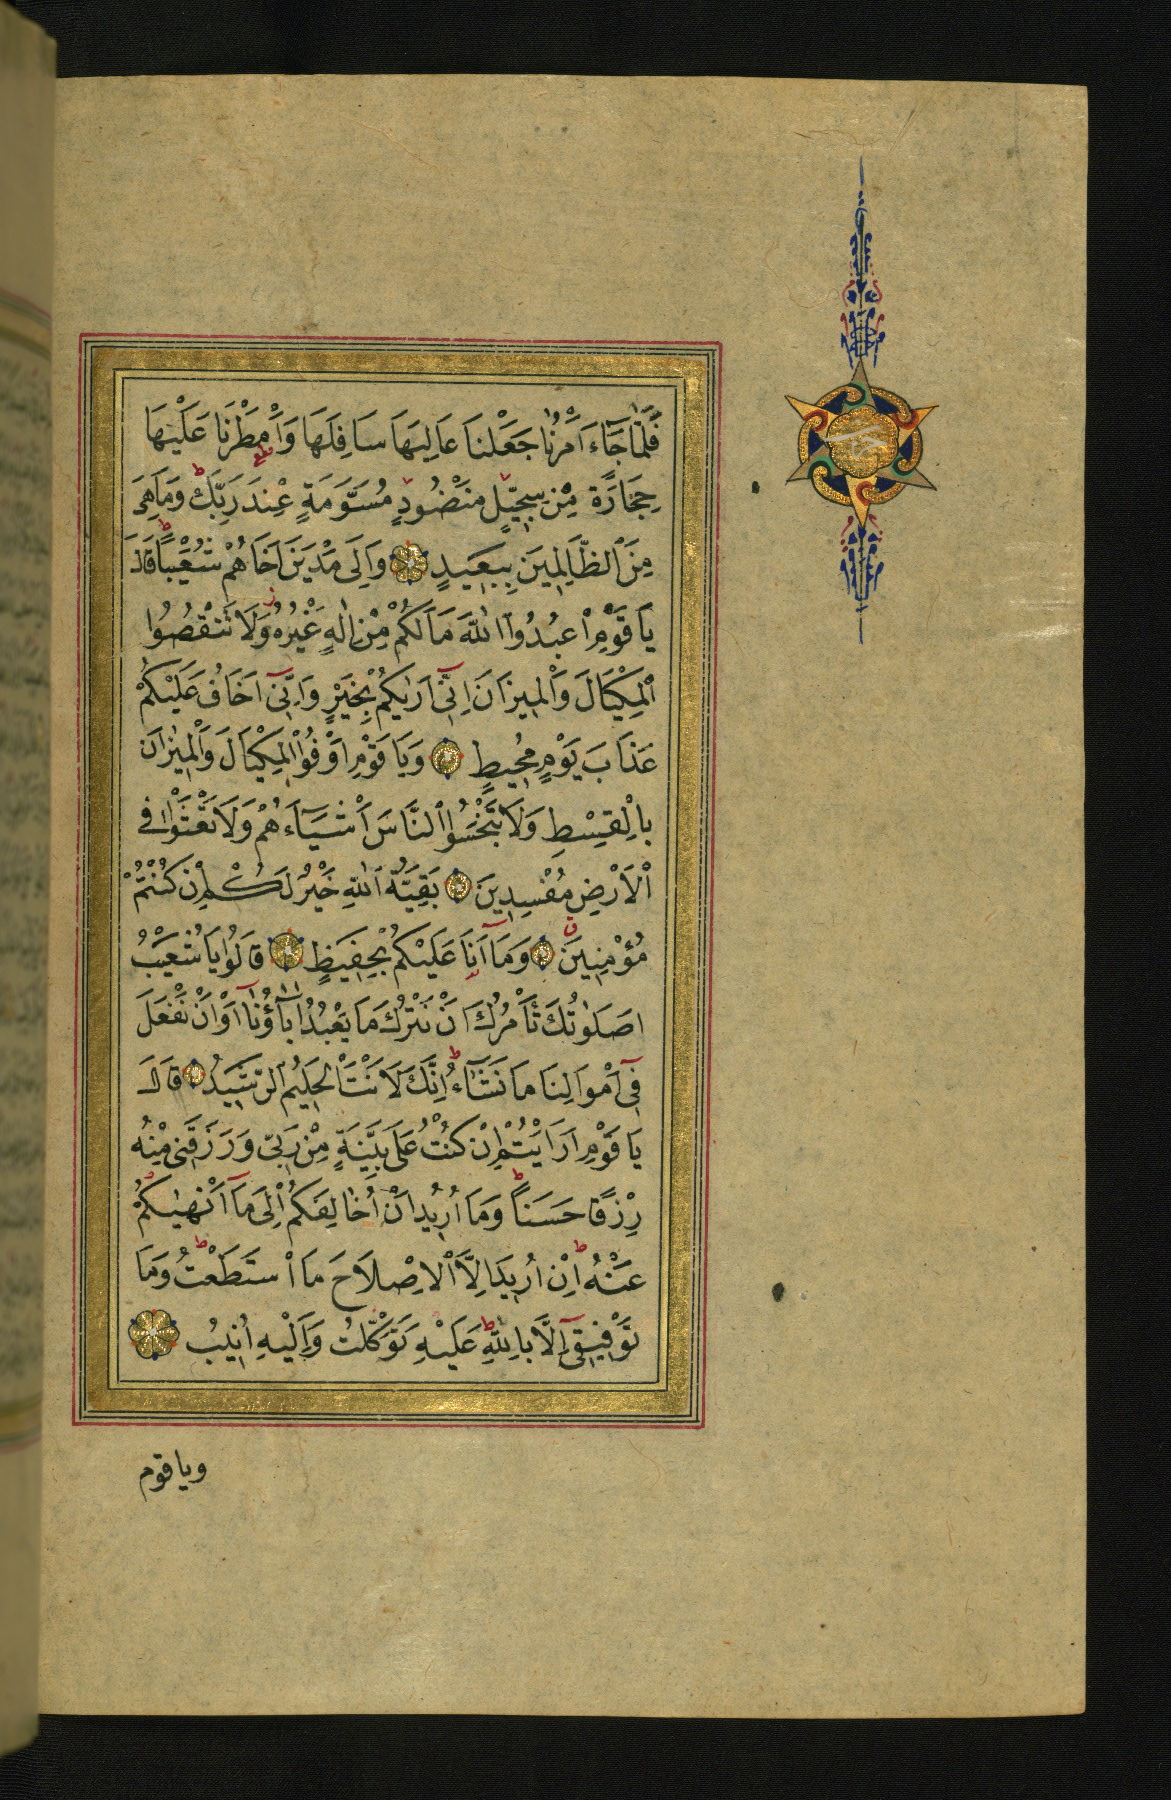 فَلَمَّا جَٓاءَ اَمْرُنَا جَعَلْنَا عَالِيَهَا سَافِلَهَا وَاَمْطَرْنَا عَلَيْهَا
حِجَارَةً مِنْ سِجّٖيلٍ مَنْضُودٍ مُسَوَّمَةٍ عِنْدَ رَبِّكَ وَمَا هِىَ
مِنَ الظَّالِمٖينَ بِبَعٖيدٍ وَاِلَى مَدْيَنَ اَخَاهُمْ شُعَيْبًا قَالَ
يَا قَوْمِ اعْبُدُوا اللّٰهَ مَا لَكُمْ مِنْ اِلٰهٍ غَيْرُهُ وَلَا تَنْقُصُوا
الْمِكْيَالَ وَالْمٖيزَانَ اِنّٖٓى اَرٰيكُمْ بِخَيْرٍ وَاِنّٖٓى اَخَافُ عَلَيْكُمْ
عَذَابَ يَوْمٍ مُحٖيطٍ وَيَا قَوْمِ اَوْفُوا الْمِكْيَالَ وَالْمٖيزَانَ
بِالْقِسْطِ وَلَا تَبْخَسُوا النَّاسَ اَشْيَٓاءَهُمْ وَلَا تَعْثَوْا فِى
الْاَرْضِ مُفْسِدٖينَ بَقِيَّةُ اللّٰهِ خَيْرٌ لَكُمْ اِنْ كُنْتُمْ
مُؤْمِنٖينَ وَمَٓا اَنَا عَلَيْكُمْ بِحَفٖيظٍ قَالُوا يَا شُعَيْبُ
اَصَلٰوتُكَ تَأْمُرُكَ اَنْ نَتْرُكَ مَا يَعْبُدُ اٰبَٓاؤُنَٓا اَوْ اَنْ نَفْعَلَ
فٖٓى اَمْوَالِنَا مَا نَشَٓاءُ اِنَّكَ لَاَنْتَ الْحَلٖيمُ الرَّشٖيدُ قَالَ
يَا قَوْمِ اَرَاَيْتُمْ اِنْ كُنْتُ عَلَى بَيِّنَةٍ مِنْ رَبّٖى وَرَزَقَنٖى مِنْهُ
رِزْقًا حَسَنًا وَمَا اُرٖيدُ اَنْ اُخَالِفَكُمْ اِلَى مَٓا اَنْهٰيكُمْ
عَنْهُ اِنْ اُرٖيدُ اِلَّا الْاِصْلَاحَ مَا اسْتَطَعْتُ وَمَا
تَوْفٖيقٖٓى اِلَّا بِاللّٰهِ عَلَيْهِ تَوَكَّلْتُ وَاِلَيْهِ اُنٖيبُ
وياقوم